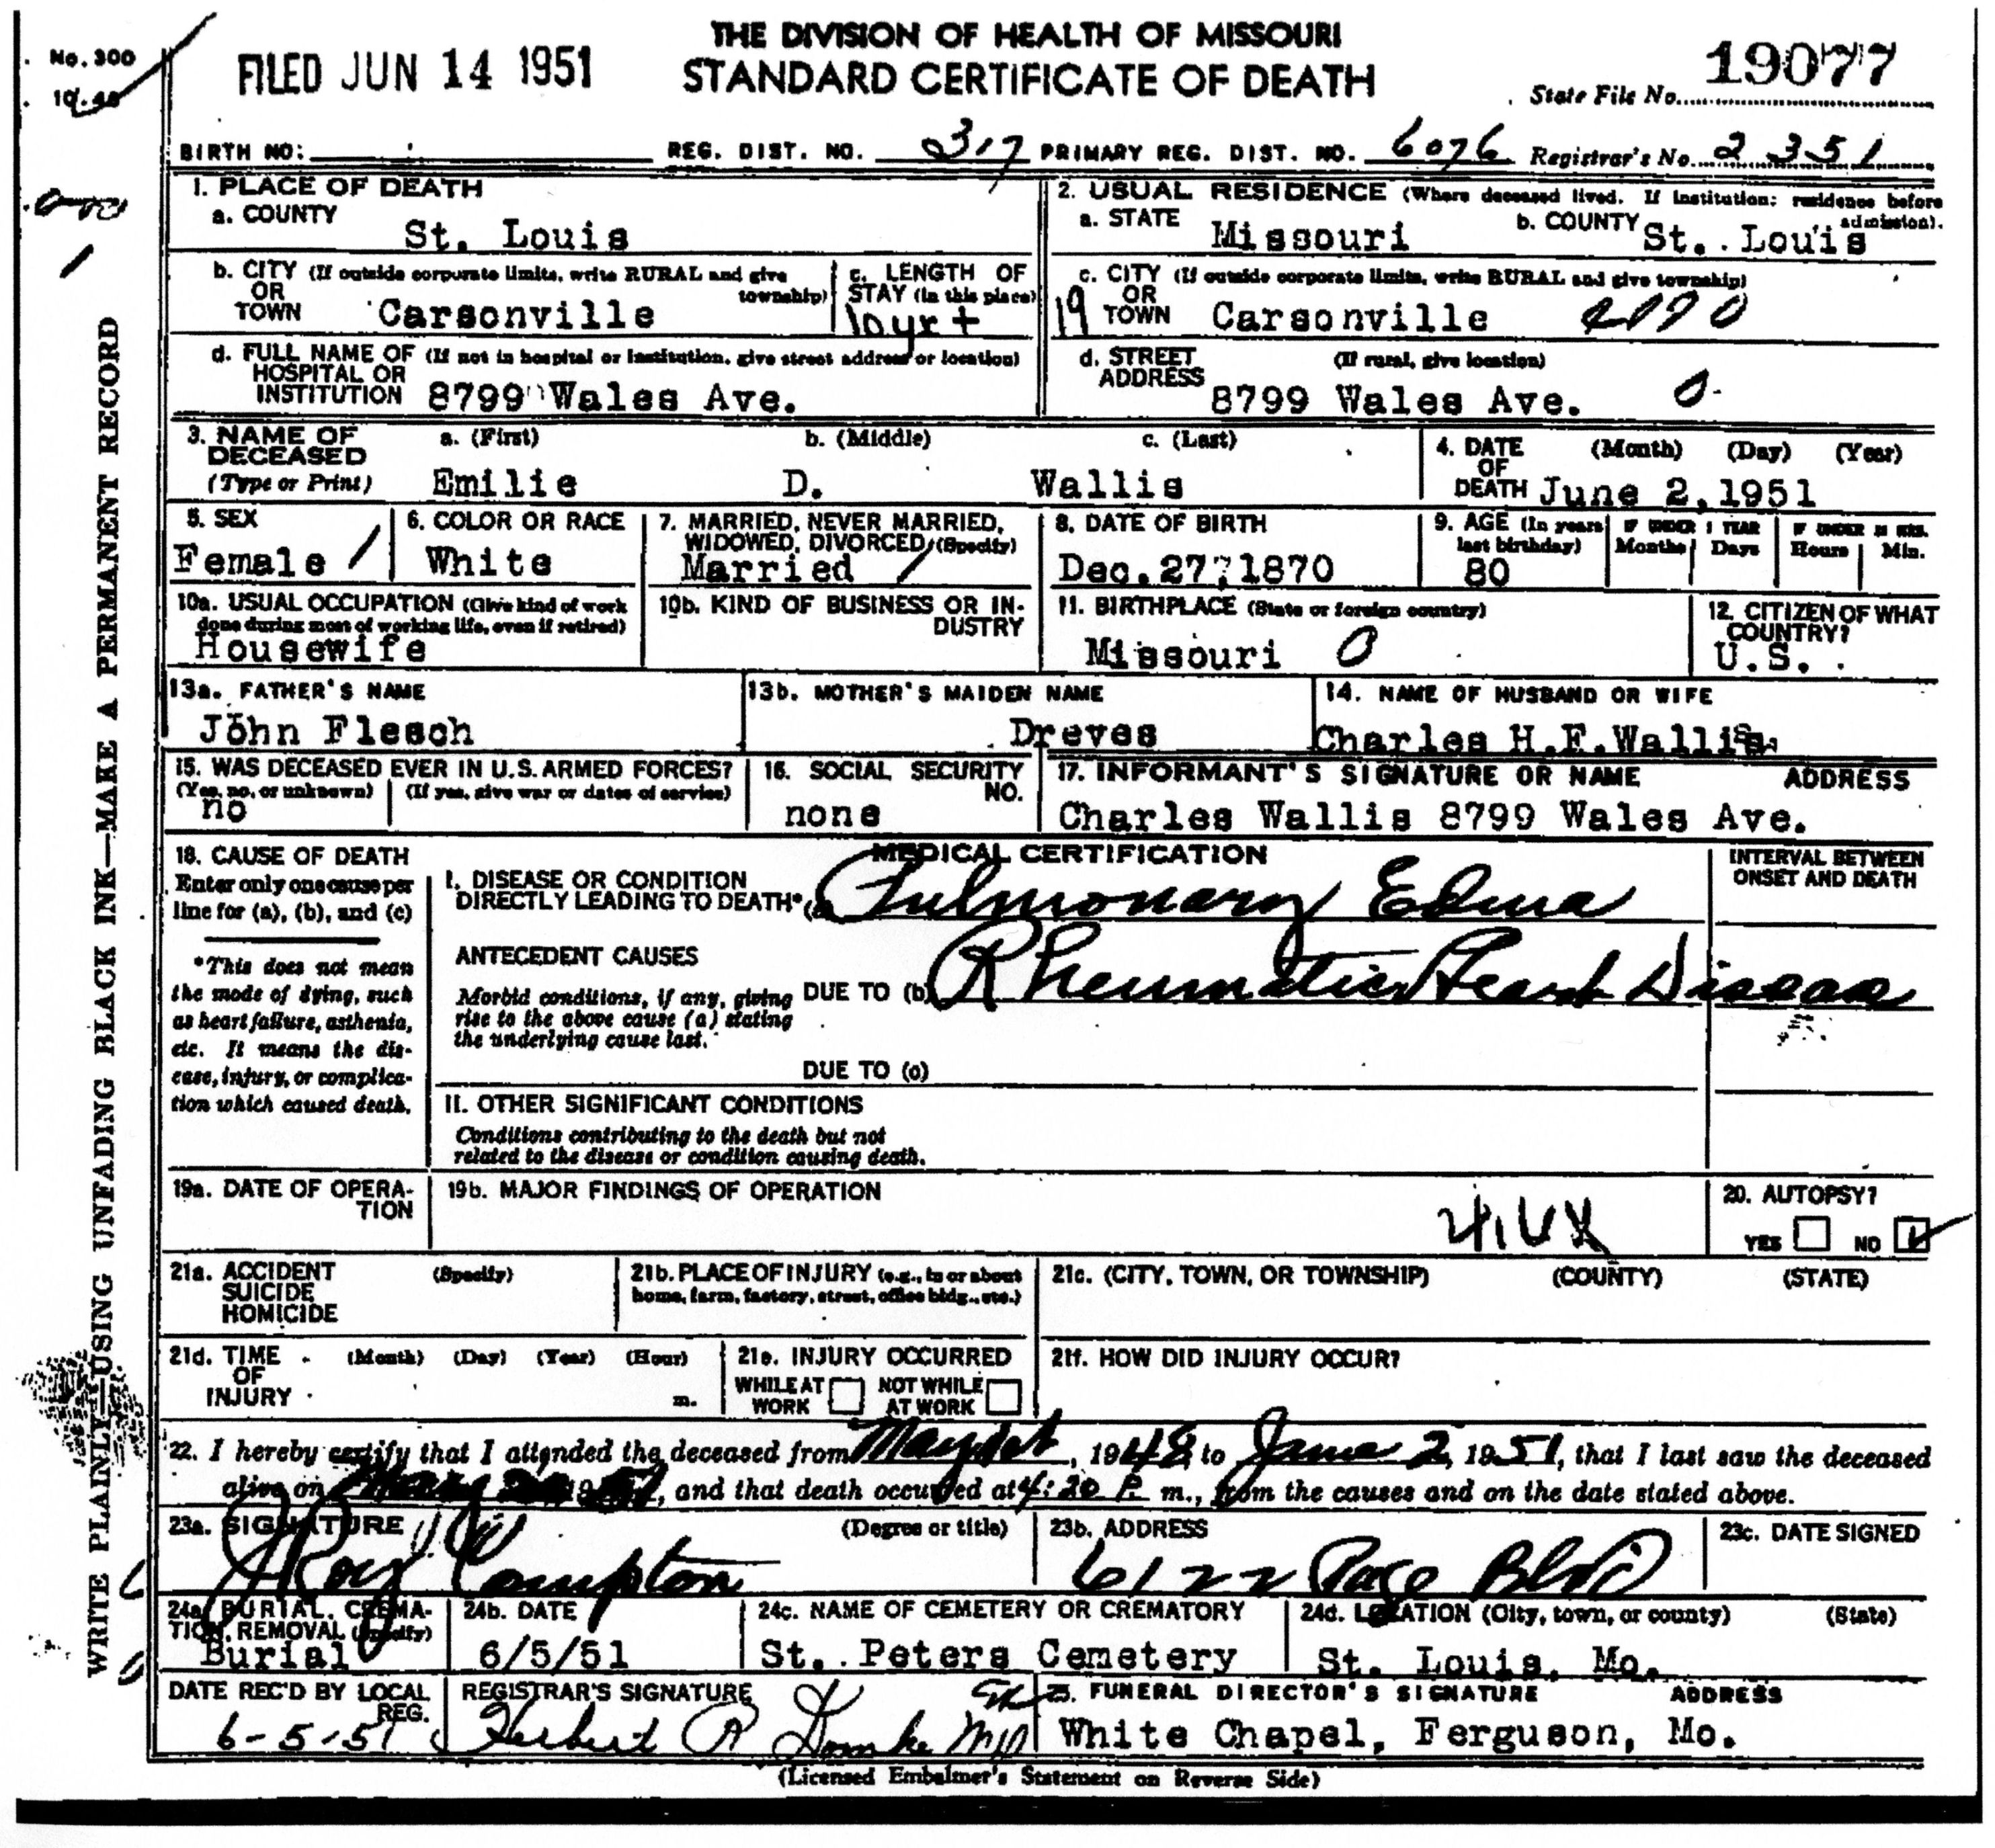 THE DIVISION OF HEALTH OF MISSOURI
STANDARD CERTIFICATE OF DEATH
No. 300
10-48
FILED JUN 14 1951
State File No. 19077
BIRTH NO: REG. DIST. NO. 317 PRIMARY REG. DIST. NO. 6076 Registrar's No. 2351
1. PLACE OF DEATH
a. COUNTY St. Louis
2. USUAL RESIDENCE (Where deceased lived. If institution: residence before admission).
a. STATE Missouri b. COUNTY St. Louis
b. CITY (If outside corporate limits, write RURAL and give township) OR TOWN Carsonville
c. LENGTH OF STAY (in this place) 10 yr +
c. CITY (If outside corporate limits, write RURAL and give township) OR TOWN Carsonville
19
d. FULL NAME OF (If not in hospital or institution, give street address or location) HOSPITAL OR INSTITUTION 8799 Wales Ave.
d. STREET ADDRESS (If rural, give location) 8799 Wales Ave. 0
3. NAME OF DECEASED (Type or Print)
a. (First) Emilie b. (Middle) D. c. (Last) Wallis
4. DATE OF DEATH (Month) (Day) (Year) June 2, 1951
5. SEX Female
6. COLOR OR RACE White
7. MARRIED, NEVER MARRIED, WIDOWED, DIVORCED (Specify) Married
8. DATE OF BIRTH Dec. 27, 1870
9. AGE (In years last birthday) 80 IF UNDER 1 YEAR Months Days IF UNDER 24 HRS. Hours Min.
10a. USUAL OCCUPATION (Give kind of work done during most of working life, even if retired) Housewife
10b. KIND OF BUSINESS OR INDUSTRY
11. BIRTHPLACE (State or foreign country) Missouri 0
12. CITIZEN OF WHAT COUNTRY? U.S.
13a. FATHER'S NAME John Flesch
13b. MOTHER'S MAIDEN NAME Dreves
14. NAME OF HUSBAND OR WIFE Charles H.F. Wallis
15. WAS DECEASED EVER IN U.S. ARMED FORCES? (Yes, no, or unknown) (If yes, give war or dates of service) no
16. SOCIAL SECURITY NO. none
17. INFORMANT'S SIGNATURE OR NAME ADDRESS
Charles Wallis 8799 Wales Ave.
18. CAUSE OF DEATH
Enter only one cause per line for (a), (b), and (c)
*This does not mean the mode of dying, such as heart failure, asthenia, etc. It means the disease, injury, or complication which caused death.
MEDICAL CERTIFICATION
INTERVAL BETWEEN ONSET AND DEATH
I. DISEASE OR CONDITION DIRECTLY LEADING TO DEATH* (a) Pulmonary Edema
ANTECEDENT CAUSES
Morbid conditions, if any, giving rise to the above cause (a) stating the underlying cause last.
DUE TO (b) Rheumatic Heart Disease
DUE TO (c)
II. OTHER SIGNIFICANT CONDITIONS
Conditions contributing to the death but not related to the disease or condition causing death.
19a. DATE OF OPERATION
19b. MAJOR FINDINGS OF OPERATION
416X
20. AUTOPSY? YES NO
21a. ACCIDENT SUICIDE HOMICIDE (Specify)
21b. PLACE OF INJURY (e.g., in or about home, farm, factory, street, office bldg., etc.)
21c. (CITY, TOWN, OR TOWNSHIP) (COUNTY) (STATE)
21d. TIME OF INJURY (Month) (Day) (Year) (Hour) m.
21e. INJURY OCCURRED WHILE AT WORK NOT WHILE AT WORK
21f. HOW DID INJURY OCCUR?
22. I hereby certify that I attended the deceased from May 1st, 1948, to June 2, 1951, that I last saw the deceased
alive on May 1951, and that death occurred at 4:20 P. m., from the causes and on the date stated above.
23a. SIGNATURE (Degree or title) J Roy Compton
23b. ADDRESS 6122 Page Blvd
23c. DATE SIGNED
24a. BURIAL, CREMATION, REMOVAL (Specify) Burial
24b. DATE 6/5/51
24c. NAME OF CEMETERY OR CREMATORY St. Peters Cemetery
24d. LOCATION (City, town, or county) (State) St. Louis, Mo.
DATE REC'D BY LOCAL REG. 6-5-51
REGISTRAR'S SIGNATURE Herbert R Domke MD
25. FUNERAL DIRECTOR'S SIGNATURE ADDRESS
White Chapel, Ferguson, Mo.
(Licensed Embalmer's Statement on Reverse Side)
WRITE PLAINLY—USING UNFADING BLACK INK—MAKE A PERMANENT RECORD